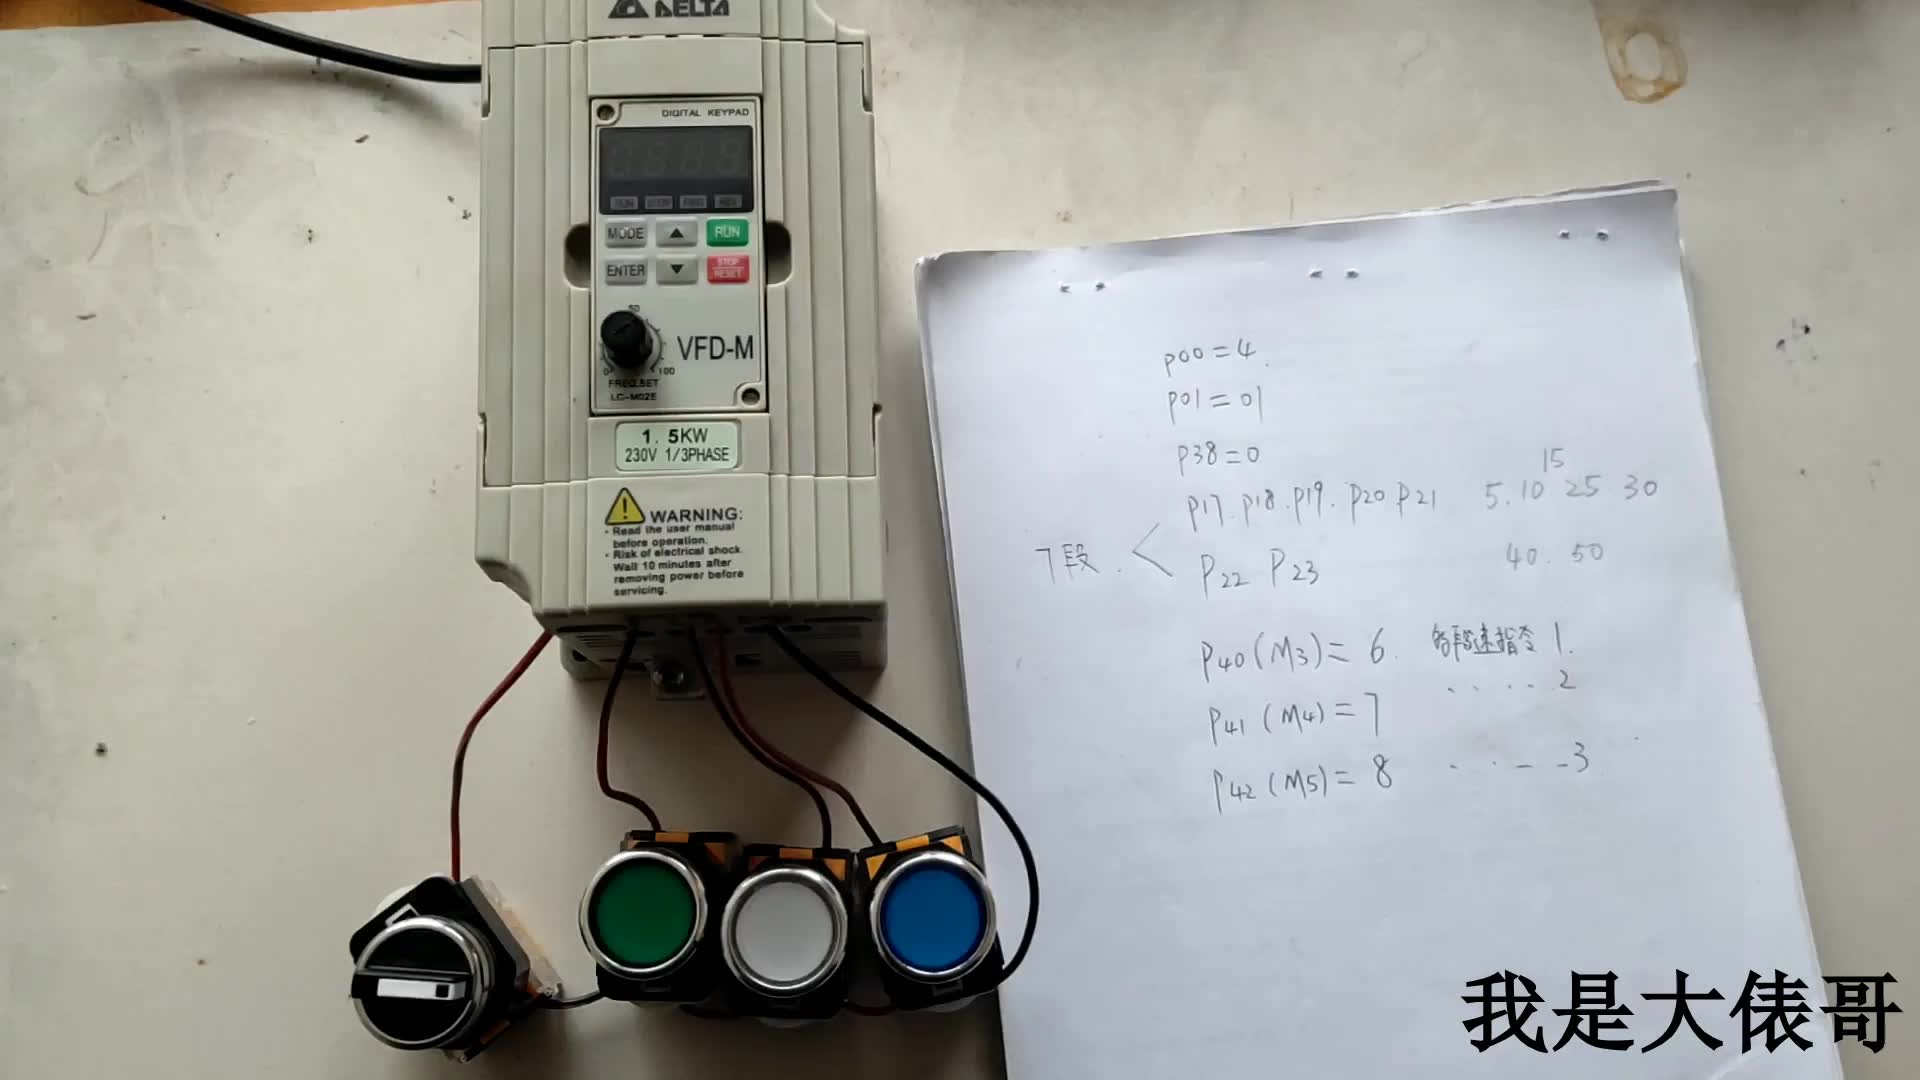 DELTA
DIGITAL KEYPAD
RUN STOP FWD REV
MODE ▲ RUN
ENTER ▼ STOP RESET
50
0 100
FREQ.SET
LC-M02E
VFD-M
1.5KW
230V 1/3PHASE
WARNING:
- Read the user manual
before operation.
- Risk of electrical shock.
Wait 10 minutes after
removing power before
servicing.
P00=4.
P01=01
P38=0
15
P17.P18.P19.P20 P21 5.10 25 30
7段.
P22 P23 40.50
P40(M3)=6. 多段速指令1.
P41(M4)=7 ....2
P42(M5)=8 ....3
我是大俵哥